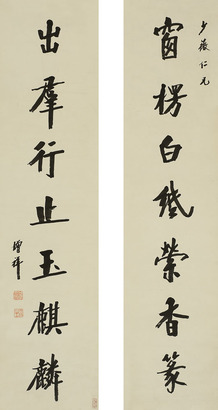 少薇仁兄
窗楞白紙縈香篆
出羣行止玉麒麟
增祥